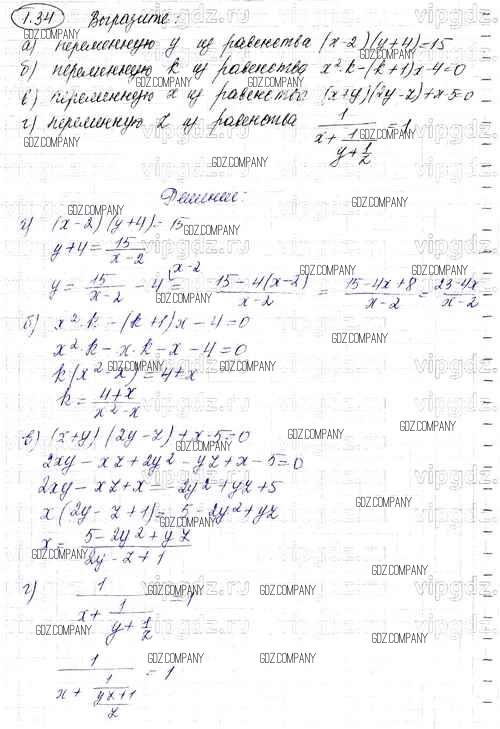 1.34 Выразите:
а) переменную y из равенства (x-2)(y+4)=15
б) переменную k из равенства x²·k-(k+1)x-4=0
в) переменную x из равенства (x+y)(2y-z)+x-5=0
г) переменную z из равенства 1/(x+1/(y+1/z))=1
Решение:
а) (x-2)(y+4)=15
y+4=15/(x-2)
y=15/(x-2) - 4 = (15-4(x-2))/(x-2) = (15-4x+8)/(x-2) = (23-4x)/(x-2)
б) x²·k-(k+1)x-4=0
x²·k-x·k-x-4=0
k(x²-x)=4+x
k=(4+x)/(x²-x)
в) (x+y)(2y-z)+x-5=0
2xy-xz+2y²-yz+x-5=0
2xy-xz+x=-2y²+yz+5
x(2y-z+1)=5-2y²+yz
x=(5-2y²+yz)/(2y-z+1)
г) 1/(x+1/(y+1/z))=1
1/(x+1/((yz+1)/z))=1
GDZ.COMPANY
vipgdz.ru